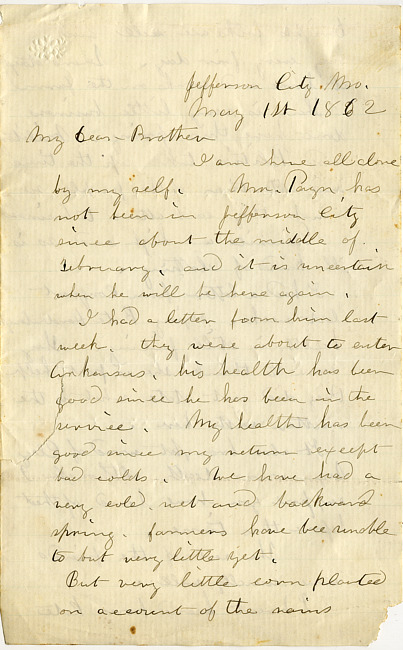 Jefferson City Mo.
May 1st 1862
My Dear Brother
I am here all alone
by my self. Mr. Payn has
not been in Jefferson City
since about the middle of
February, and it is uncertain
when he will be here again.
I had a letter from him last
week. they were about to enter
Arkansas. his health has been
good since he has been in the
service. My health has been
good since my return except
bad colds. We have had a
very cold, wet and backward
spring. farmers have bee unable
to but very little yet.
But very little corn planted
on account of the rains